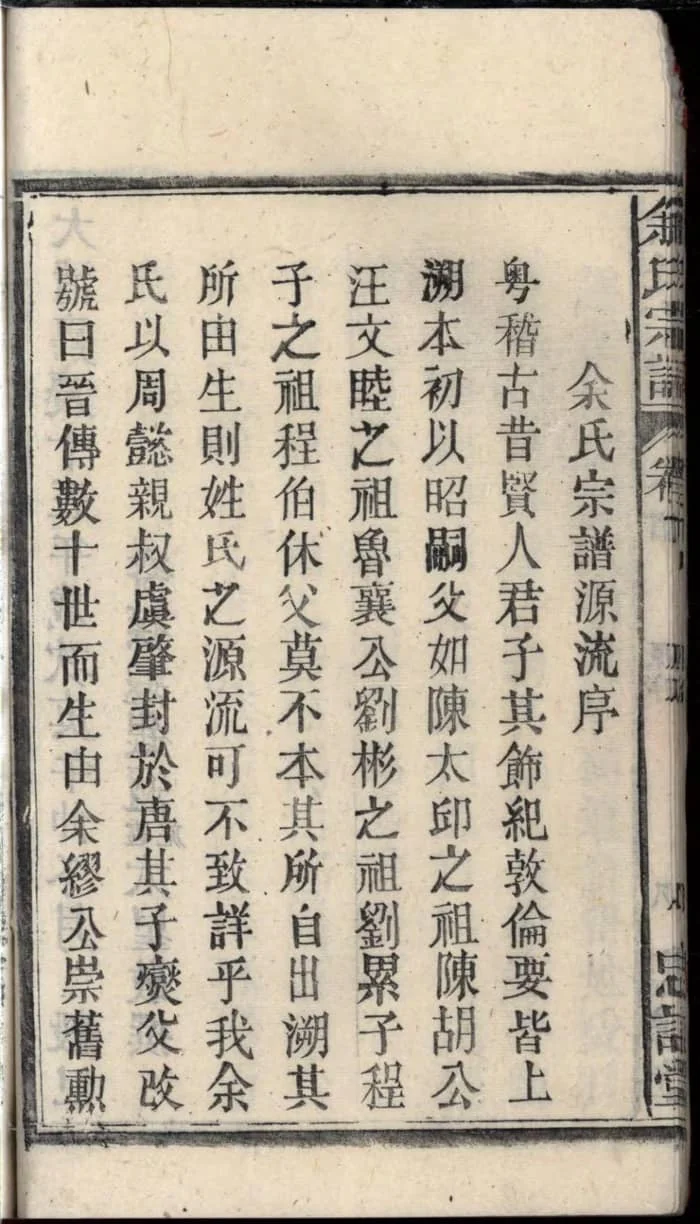 余氏宗譜
余氏宗譜源流序
粤稽古昔賢人君子其飾紀敦倫要皆上
溯本初以昭嗣父如陳太邱之祖陳胡公
汪文睦之祖魯襄公劉彬之祖劉累子程
子之祖程伯休父莫不本其所自出溯其
所由生則姓氏之源流可不致詳乎我余
氏以周懿親叔虞肇封於唐其子燮父改
號曰晉傳數十世而生由余繆公崇舊勳